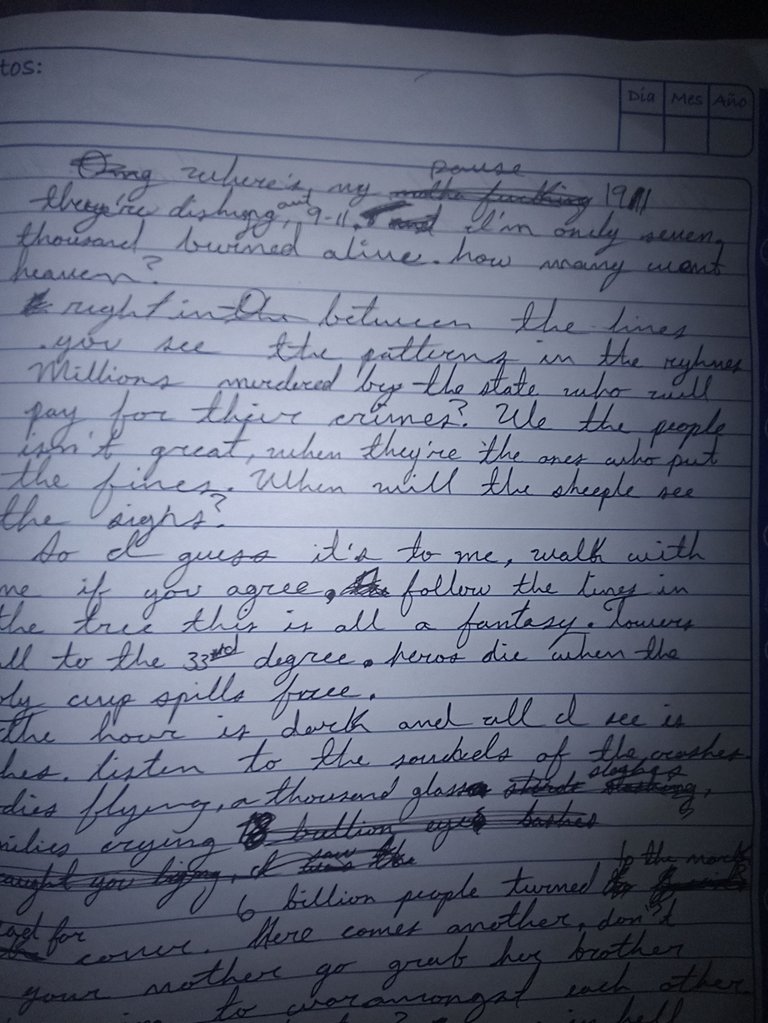 tos:
Dia Mes Año
pause
where's my 1911
they're dishing out 9-11. I'm only seven,
thousand burned alive. how many went
heaven?
right in between the lines
.you see the patterns in the ryhmes
Millions murdered by the state who will
pay for their crimes? We the people
isn't great, when they're the ones who put
the fines. When will the sheeple see
the signs?
So I guess it's to me, walk with
me if you agree, follow the lines in
the tree this is all a fantasy. Towers
ll to the 33rd degree. heros die when the
oly cup spills free.
the hour is dark and all I see is
hes. listen to the of the crashes.
dies flying, a thousand glass slashes,
milies crying
to the mark
6 billion people turned
for
cover. Here comes another, don't
your mother go grab her brother
to war amongst each other.
in hell